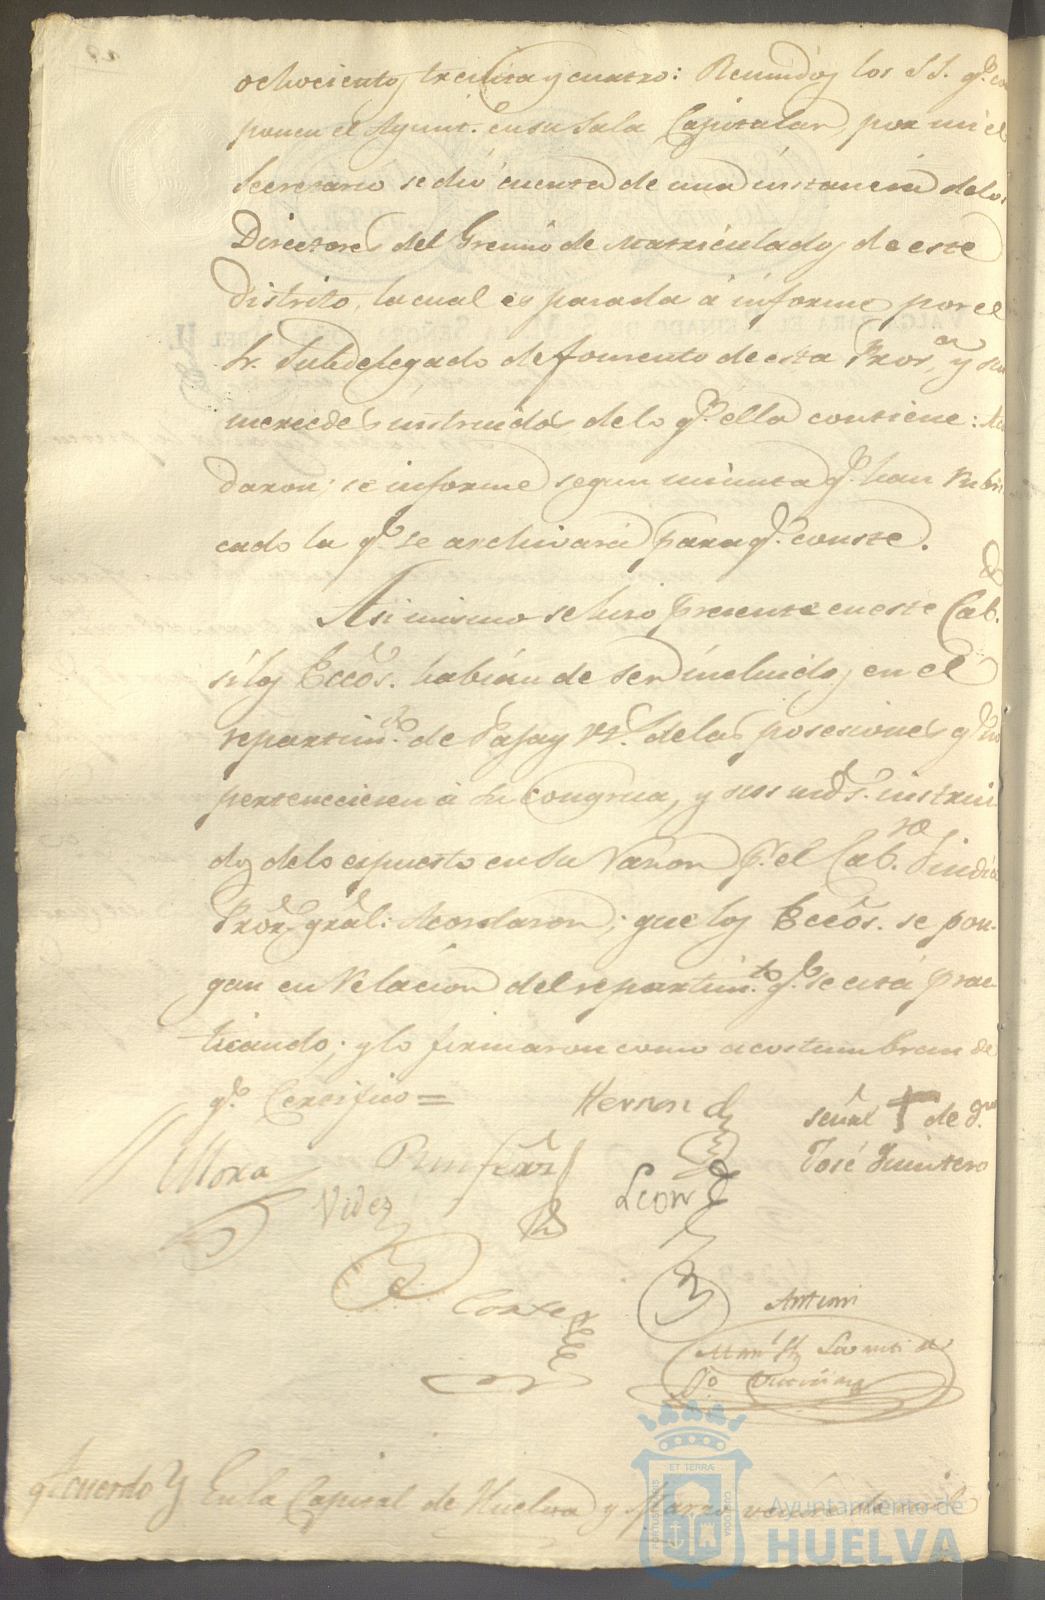 ochocientos treinta y cuatro: Reunidos los SS. qe. co
ponen el Ayunt. en su Sala Capitular, por mi el
Secretario se dió cuenta de una instancia de los
Directores del Gremio de Matriculados de este
Distrito, la cual es pasada á informe por el
Sr. Subdelegado de fomento de esta Provª. y sus
mercedes instruidos de lo qe. ella contiene:
daron; se informe segun minuta qe. han rubri
cado la qe. se archivará para qe. conste.
Asi mismo se hizo presente en este Cabdo.
si los Eccos. habian de ser incluidos en el
repartimto. de Paja y Vts. de las posesiones qe. no
pertenecieren á su Congrua, y sus mds. instrui
dos de lo espuesto en su razon pr. el Cabro. Sindico
Pror. gral: Acordaron; que los Eccos. se pon-
gan en relacion del repartimto. qe. se está prac
ticando; y lo firmaron como acostumbran de
qe. Certifico=
Hernandz
señal + de Dn.
José Quintero
Mora
Videz
Leon
Cortes
Ante mi
Acuerdo
En la Capital de Huelva y Marzo
ET TERRÆ
PORTUS MARIS
CUSTODIA
Ayuntamiento de
HUELVA